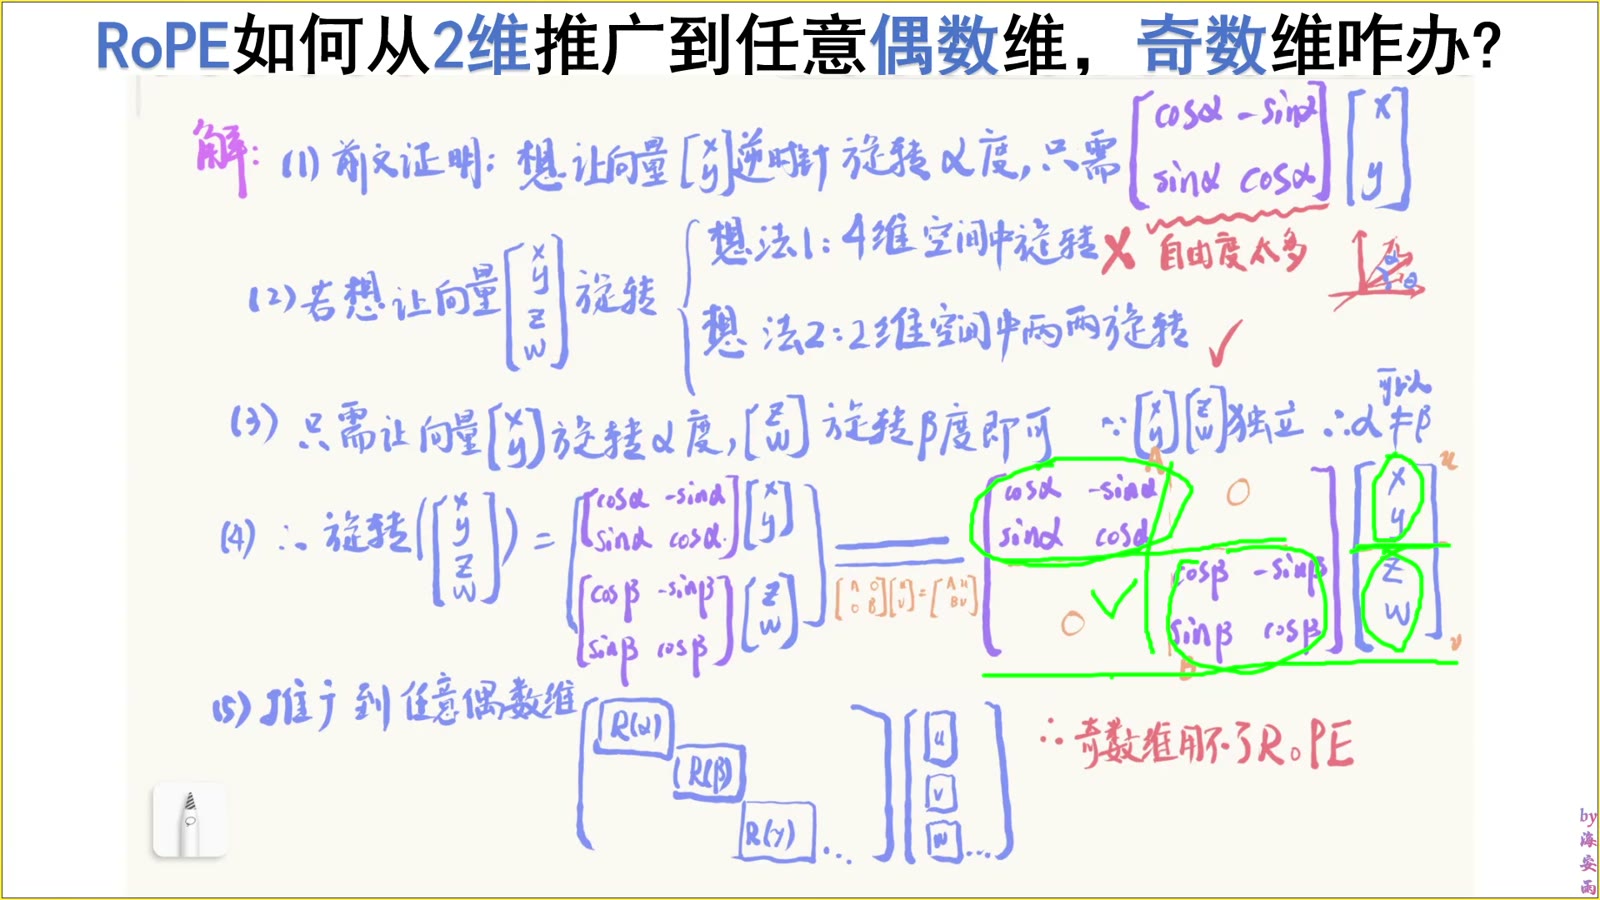 RoPE如何从2维推广到任意偶数维，奇数维咋办?
解: (1) 前文证明: 想让向量[x y]逆时针旋转α度,只需[cosα -sinα sinα cosα][x y]
(2) 若想让向量[x y z w]旋转
想法1: 4维空间中旋转 X 自由度太多
想法2: 2维空间中两两旋转 ✓
(3) 只需让向量[x y]旋转α度,[z w]旋转β度即可 ∵[x y][z w]独立 ∴α可以≠β
(4) ∴旋转([x y z w]) = [[cosα -sinα sinα cosα][x y] [cosβ -sinβ sinβ cosβ][z w]]
[A 0 0 B][u v]=[Au Bv]
[cosα -sinα 0 sinα cosα 0 cosβ -sinβ sinβ cosβ][x y z w]
A B u v
(5) 推广到任意偶数维 [R(α) R(β) R(γ) ...][u v w ...]
∴奇数维用不了RoPE
by海安雨